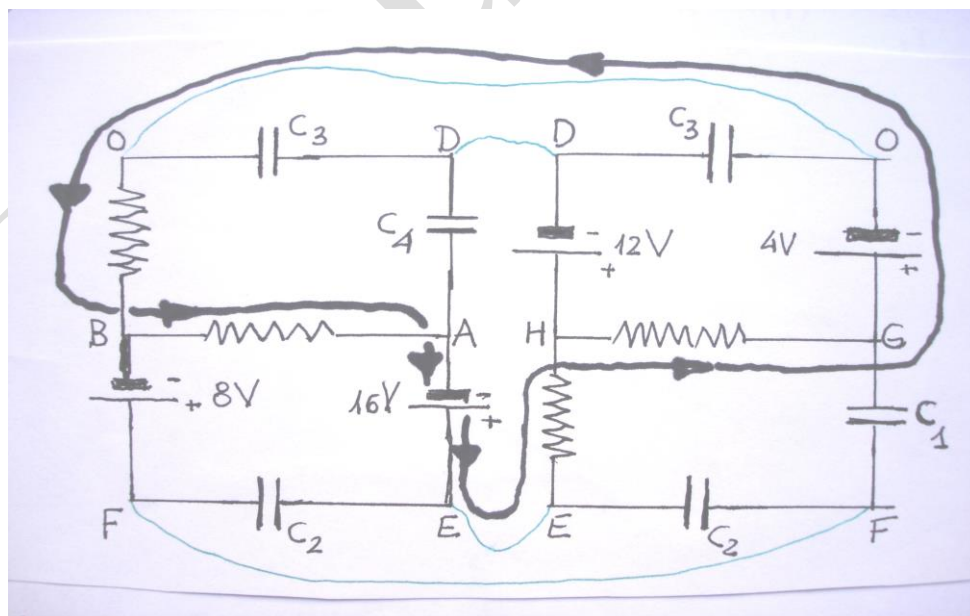 O C3 D D C3 O
C4 - 12V + 4V - +
B A H G
- + 8V 16V - + C1
F C2 E E C2 F